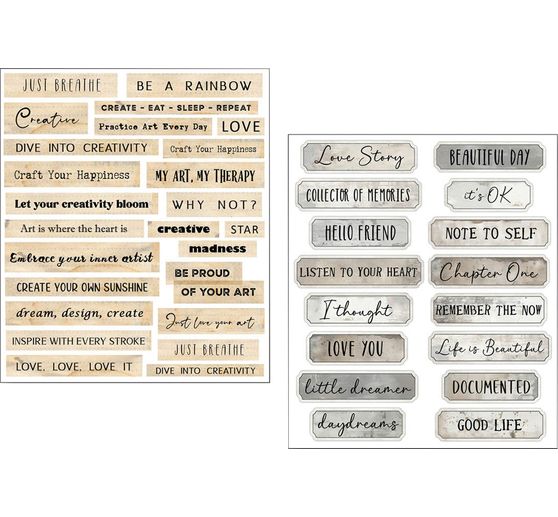 JUST BREATHE
BE A RAINBOW
Creative
CREATE - EAT - SLEEP - REPEAT
Practice Art Every Day
LOVE
DIVE INTO CREATIVITY
Craft Your Happiness
Craft Your Happiness
MY ART, MY THERAPY
Let your creativity bloom
WHY NOT?
Art is where the heart is
creative
STAR
madness
Embrace your inner artist
BE PROUD
OF YOUR ART
CREATE YOUR OWN SUNSHINE
dream, design, create
Just love your art
INSPIRE WITH EVERY STROKE
JUST BREATHE
LOVE, LOVE, LOVE IT
DIVE INTO CREATIVITY
Love Story
BEAUTIFUL DAY
COLLECTOR OF MEMORIES
it's OK
HELLO FRIEND
NOTE TO SELF
LISTEN TO YOUR HEART
Chapter One
I thought
REMEMBER THE NOW
LOVE YOU
Life is Beautiful
little dreamer
DOCUMENTED
daydreams
GOOD LIFE